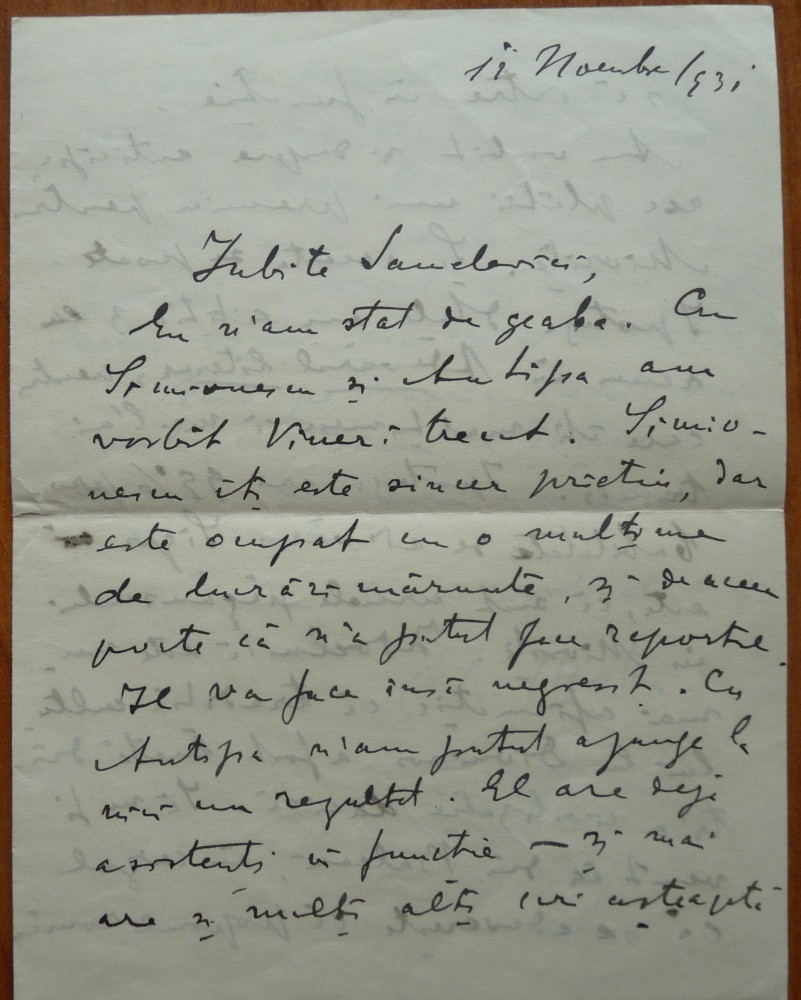 12 Noembre /931
Iubite Sandovici,
Eu n'am stat de geaba. Cu
Simionescu și Antipa am
vorbit Vineri trecut. Simio-
nescu îți este sincer prietin, dar
este ocupat cu o mulțime
de lucrări mărunte, și de aceea
poate că n'a putut face raportul.
Il va face însă negreșit. Cu
Antipa n'am putut ajunge la
nici un rezultat. El are deja
asistenți in funcție — și mai
are și mulți alți cari așteaptă